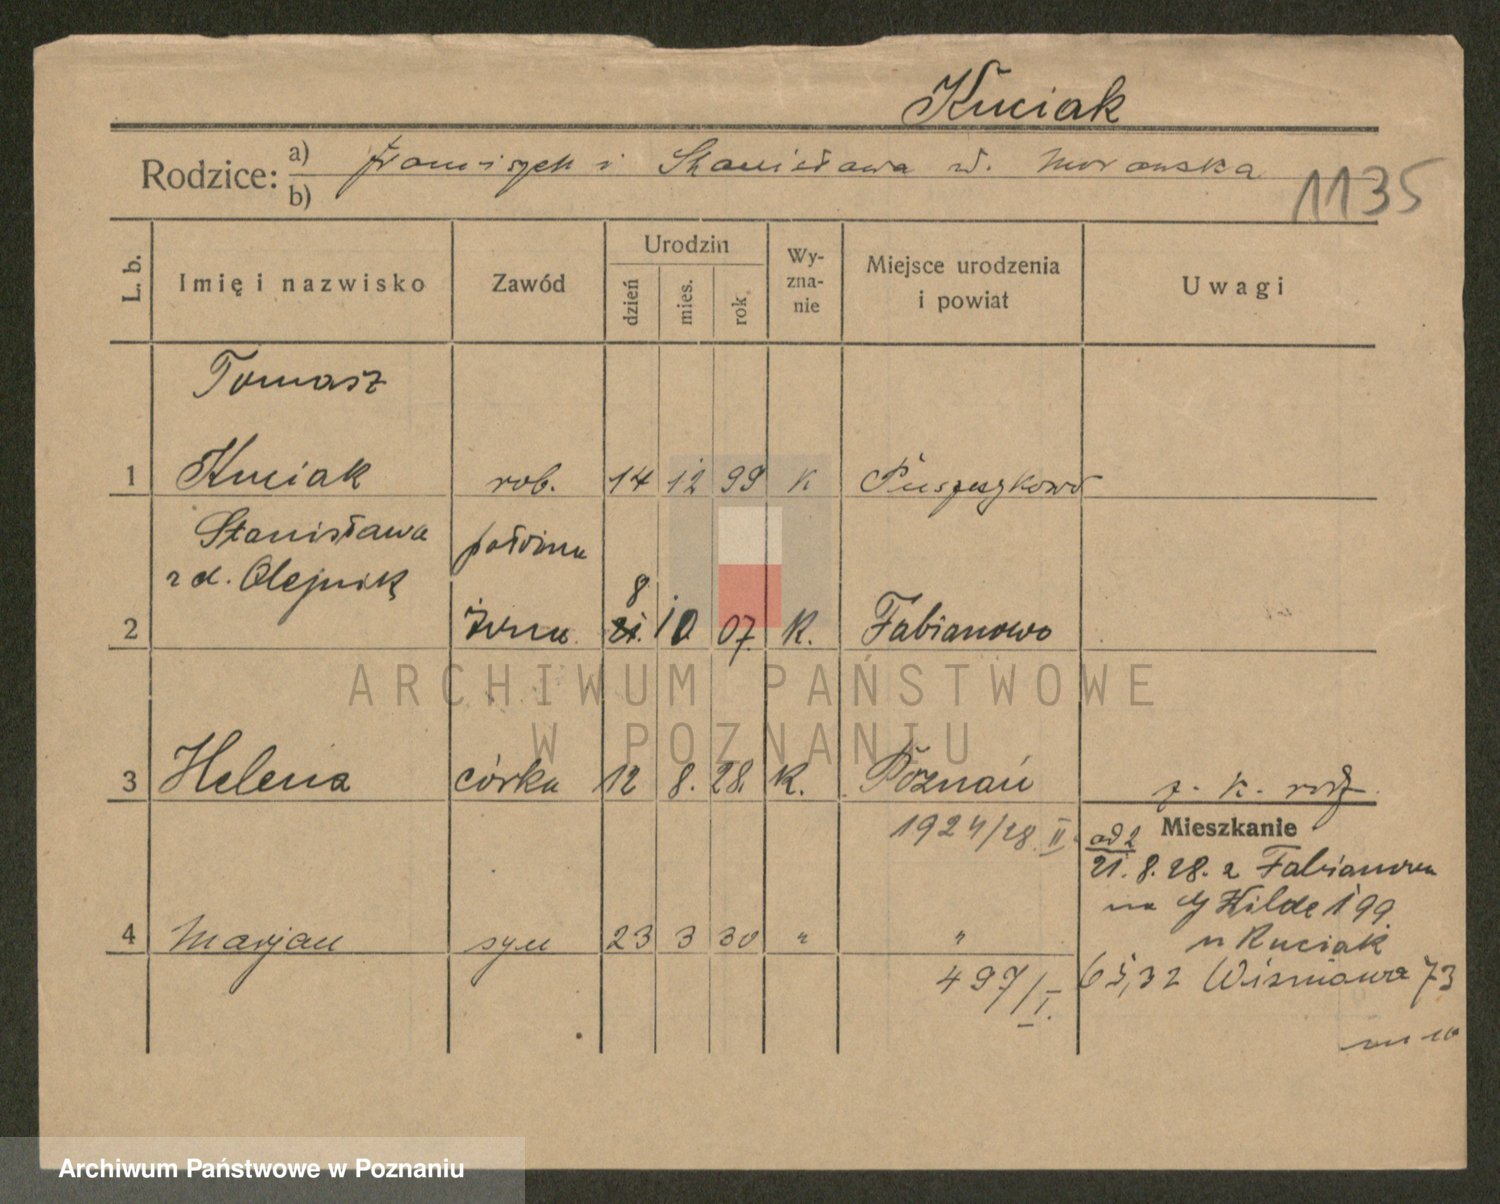 Kuciak
Rodzice: a) Franciszek i Stanisława ur. Morawska
b)
1135
L. b. Imię i nazwisko Zawód Urodzin dzień mies. rok Wy-zna-nie Miejsce urodzenia i powiat Uwagi
Tomasz
1 Kuciak rob. 14 12 99 K Puszczykowo
Stanisława
z d. Olejnik położna
8
2 żona 21. 10 07. K. Fabianowo
ARCHIWUM PAŃSTWOWE
W POZNANIU
3 Helena córka 12 8. 28. K. Poznań z. k. rodz
1924/28 II.
Mieszkanie
od 2
21. 8. 28. z Fabianowa
na Hilde 199
u Kuciak
4 Marjan syn 23 3 30 " "
497/I.
32 Wiśniowa 73
Archiwum Państwowe w Poznaniu